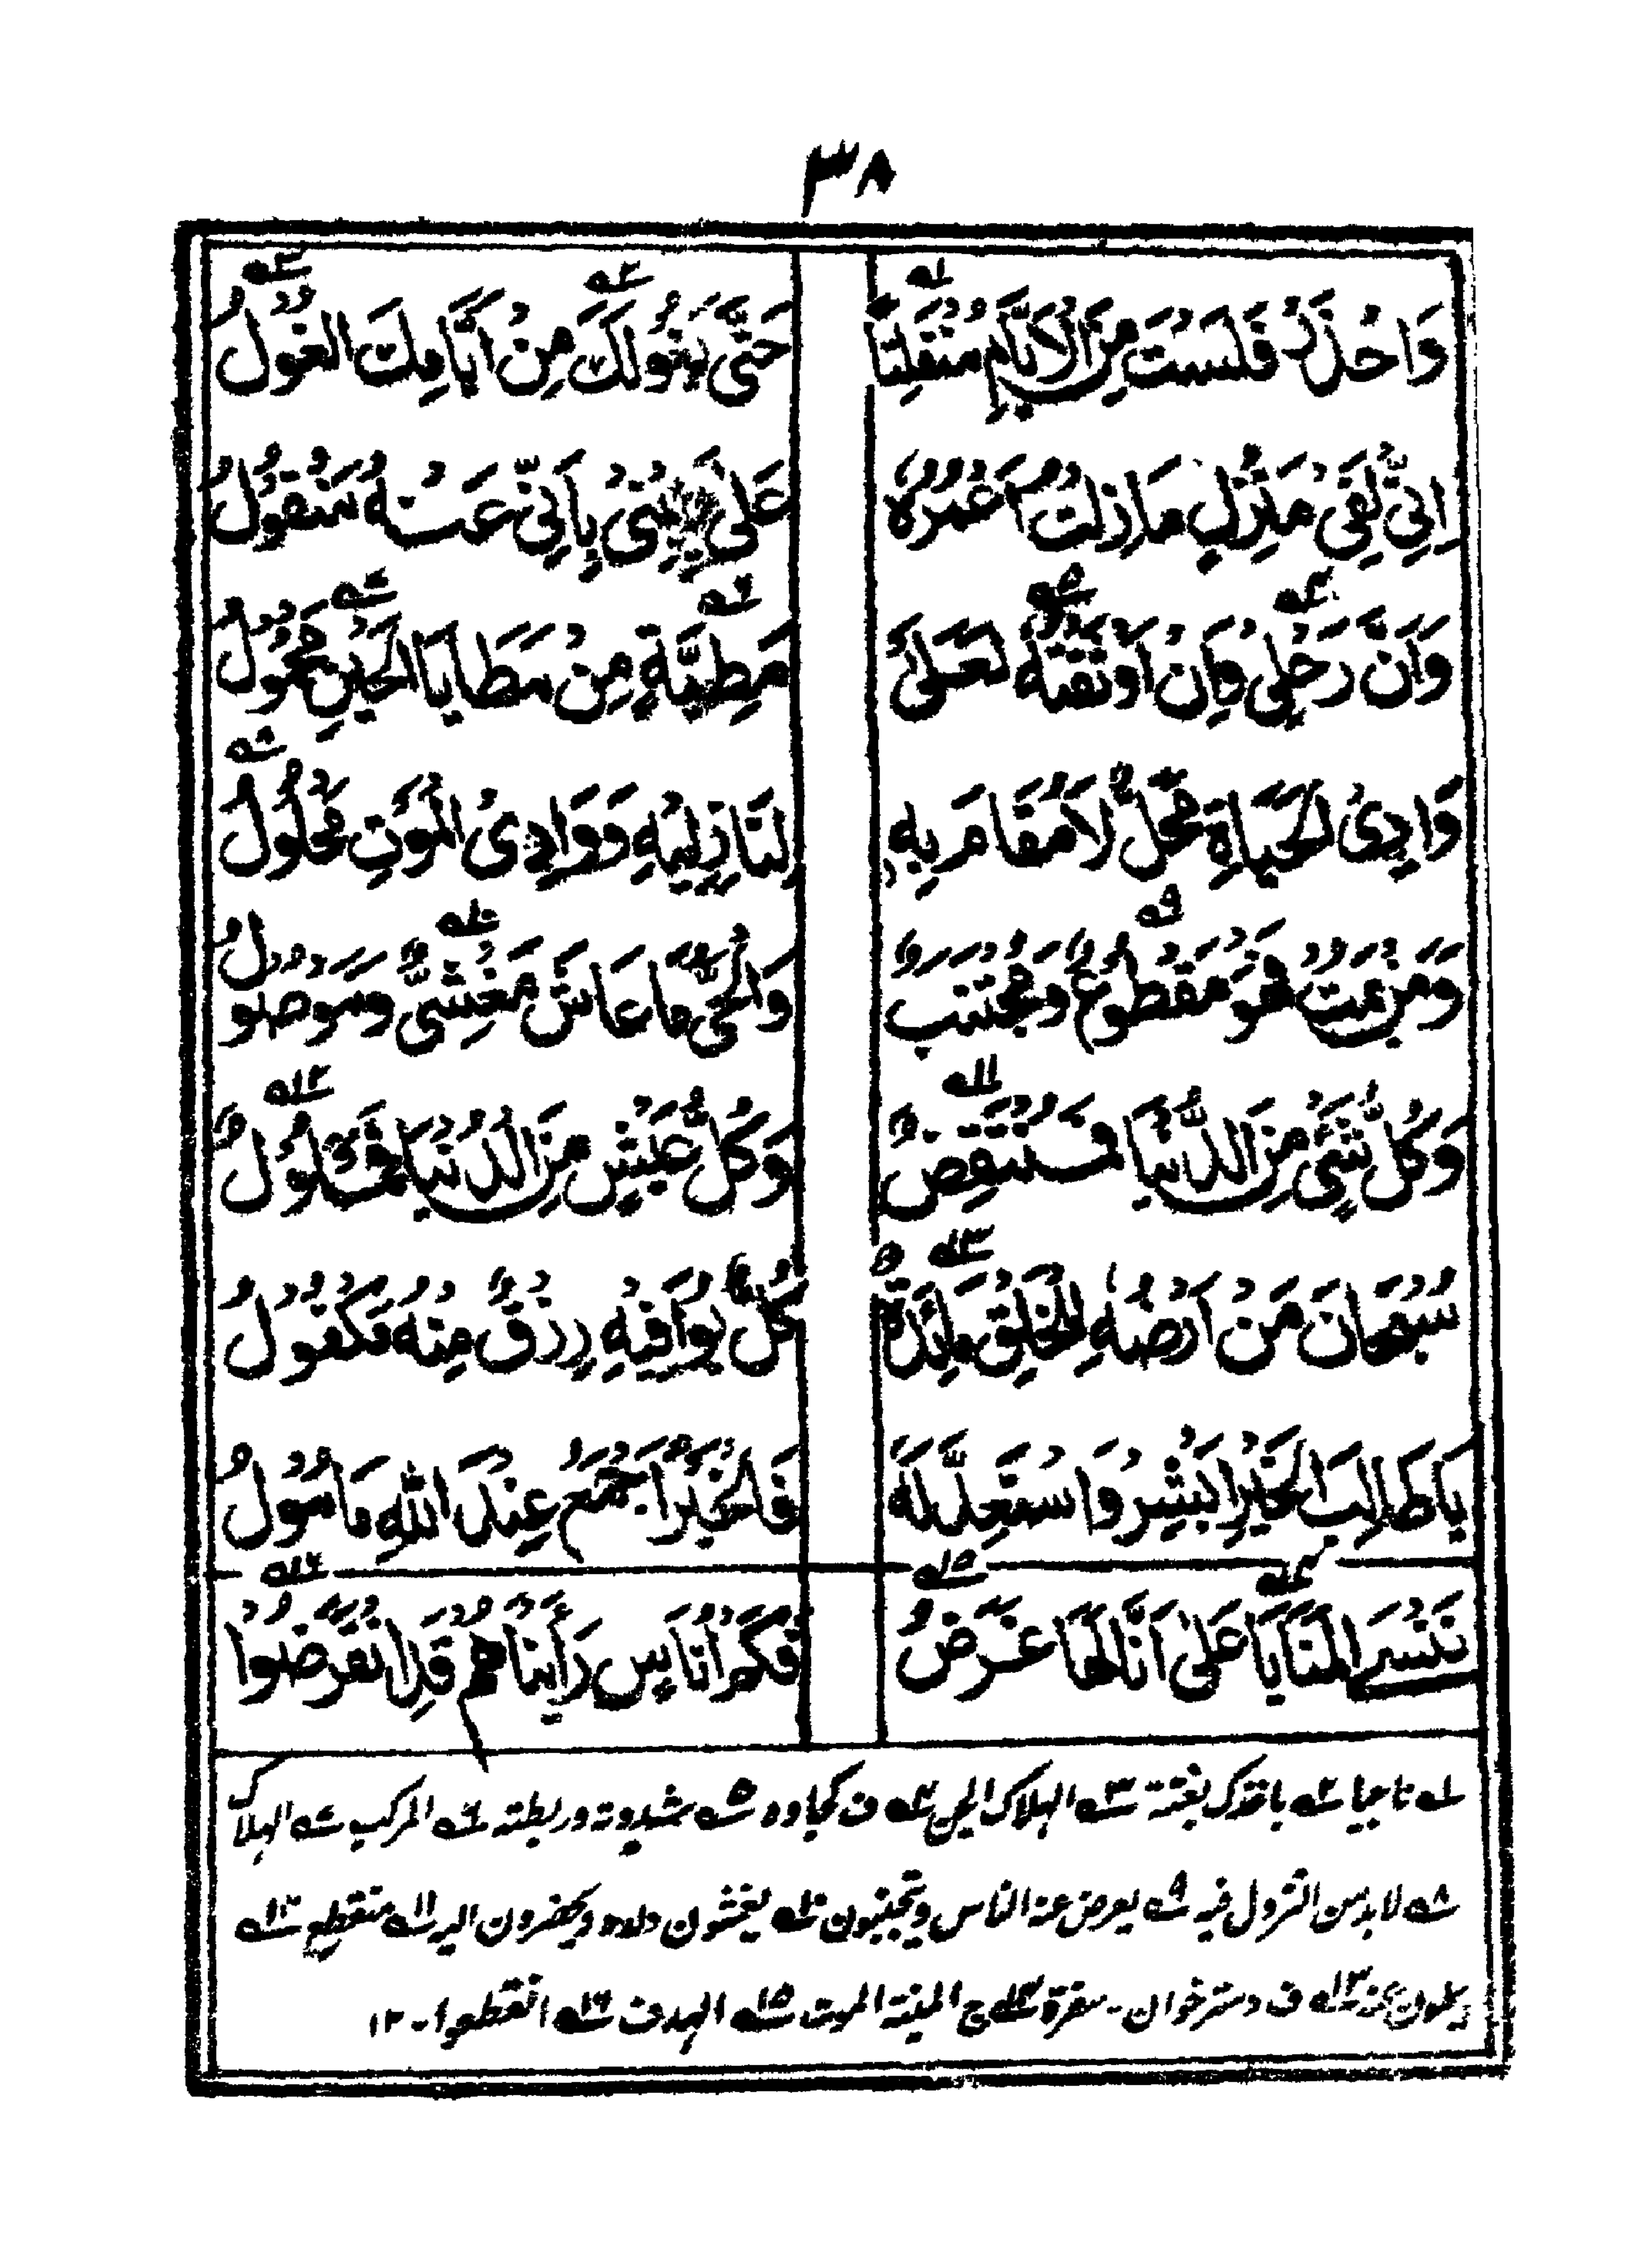 ٣٨
وَاحْذَرْ فَلَسْتَ مِنَ الْاَيَّامِ مُنْفَلِتًا حَتّٰى يَغُوْلَكَ مِنْ اَيَّامِكَ الْغُوْلُ
اِنِّيْ لَفِيْ مَنْزِلٍ مَازِلْتُ اَعْمُرُهٗ عَلٰى يَقِيْنِيْ بِاَنِّيْ عَنْهُ مَنْقُوْلُ
وَاَنَّ رَحْلِيْ وَاِنْ اَوْثَقْتُهٗ لَعَلٰى مَطِيَّةٍ مِنْ مَطَايَا الْحَيْنِ مَحْمُوْلُ
وَادِي الْحَيَاةِ مَحَلٌّ لَا مُقَامَ بِهٖ لِنَازِلِيْهِ وَوَادِي الْمَوْتِ مَحْلُوْلُ
وَمَنْ يَمُتْ فَهُوَ مَقْطُوْعٌ وَمُجْتَنَبٌ وَالْحَيُّ مَا عَاشَ مَغْشِيٌّ وَمَوْصُوْلُ
وَكُلُّ شَيْءٍ مِنَ الدُّنْيَا فَمُنْتَقِصٌ وَكُلُّ عَيْشٍ مِنَ الدُّنْيَا فَمَمْلُوْلُ
سُبْحَانَ مَنْ اَرْضُهٗ لِلْخَلْقِ مَائِدَةٌ كُلٌّ يُوَافِيْهِ رِزْقٌ مِنْهُ مَكْفُوْلُ
يَا طَالِبَ الْخَيْرِ اَبْشِرْ وَاسْتَعِدَّ لَهٗ فَالْخَيْرُ اَجْمَعُ عِنْدَ اللهِ مَاْمُوْلُ
نَنْسَى الْمَنَايَا عَلٰى اَنَّا لَهَا غَرَضٌ فَكَمْ اُنَاسٍ رَأَيْنَاهُمْ قَدِ انْقَرَضُوْا
١ ناجيا ٢ ياخذك بغتة ٣ الهلاك الجن ٤ ف كجاوه ٥ شددته وربطته ٦ المركب ٧ الهلاك
٨ لابد من النزول فيه ٩ يعرض عنه الناس ويجتنبون ١٠ يغشون ويحضرون اليه ١١ منقطع ١٢
يملون عنه ١٣ ف دسترخوان - سفرة ١٤ ج المنية الموت ١٥ الهدف ١٦ انقطعوا - ١٢